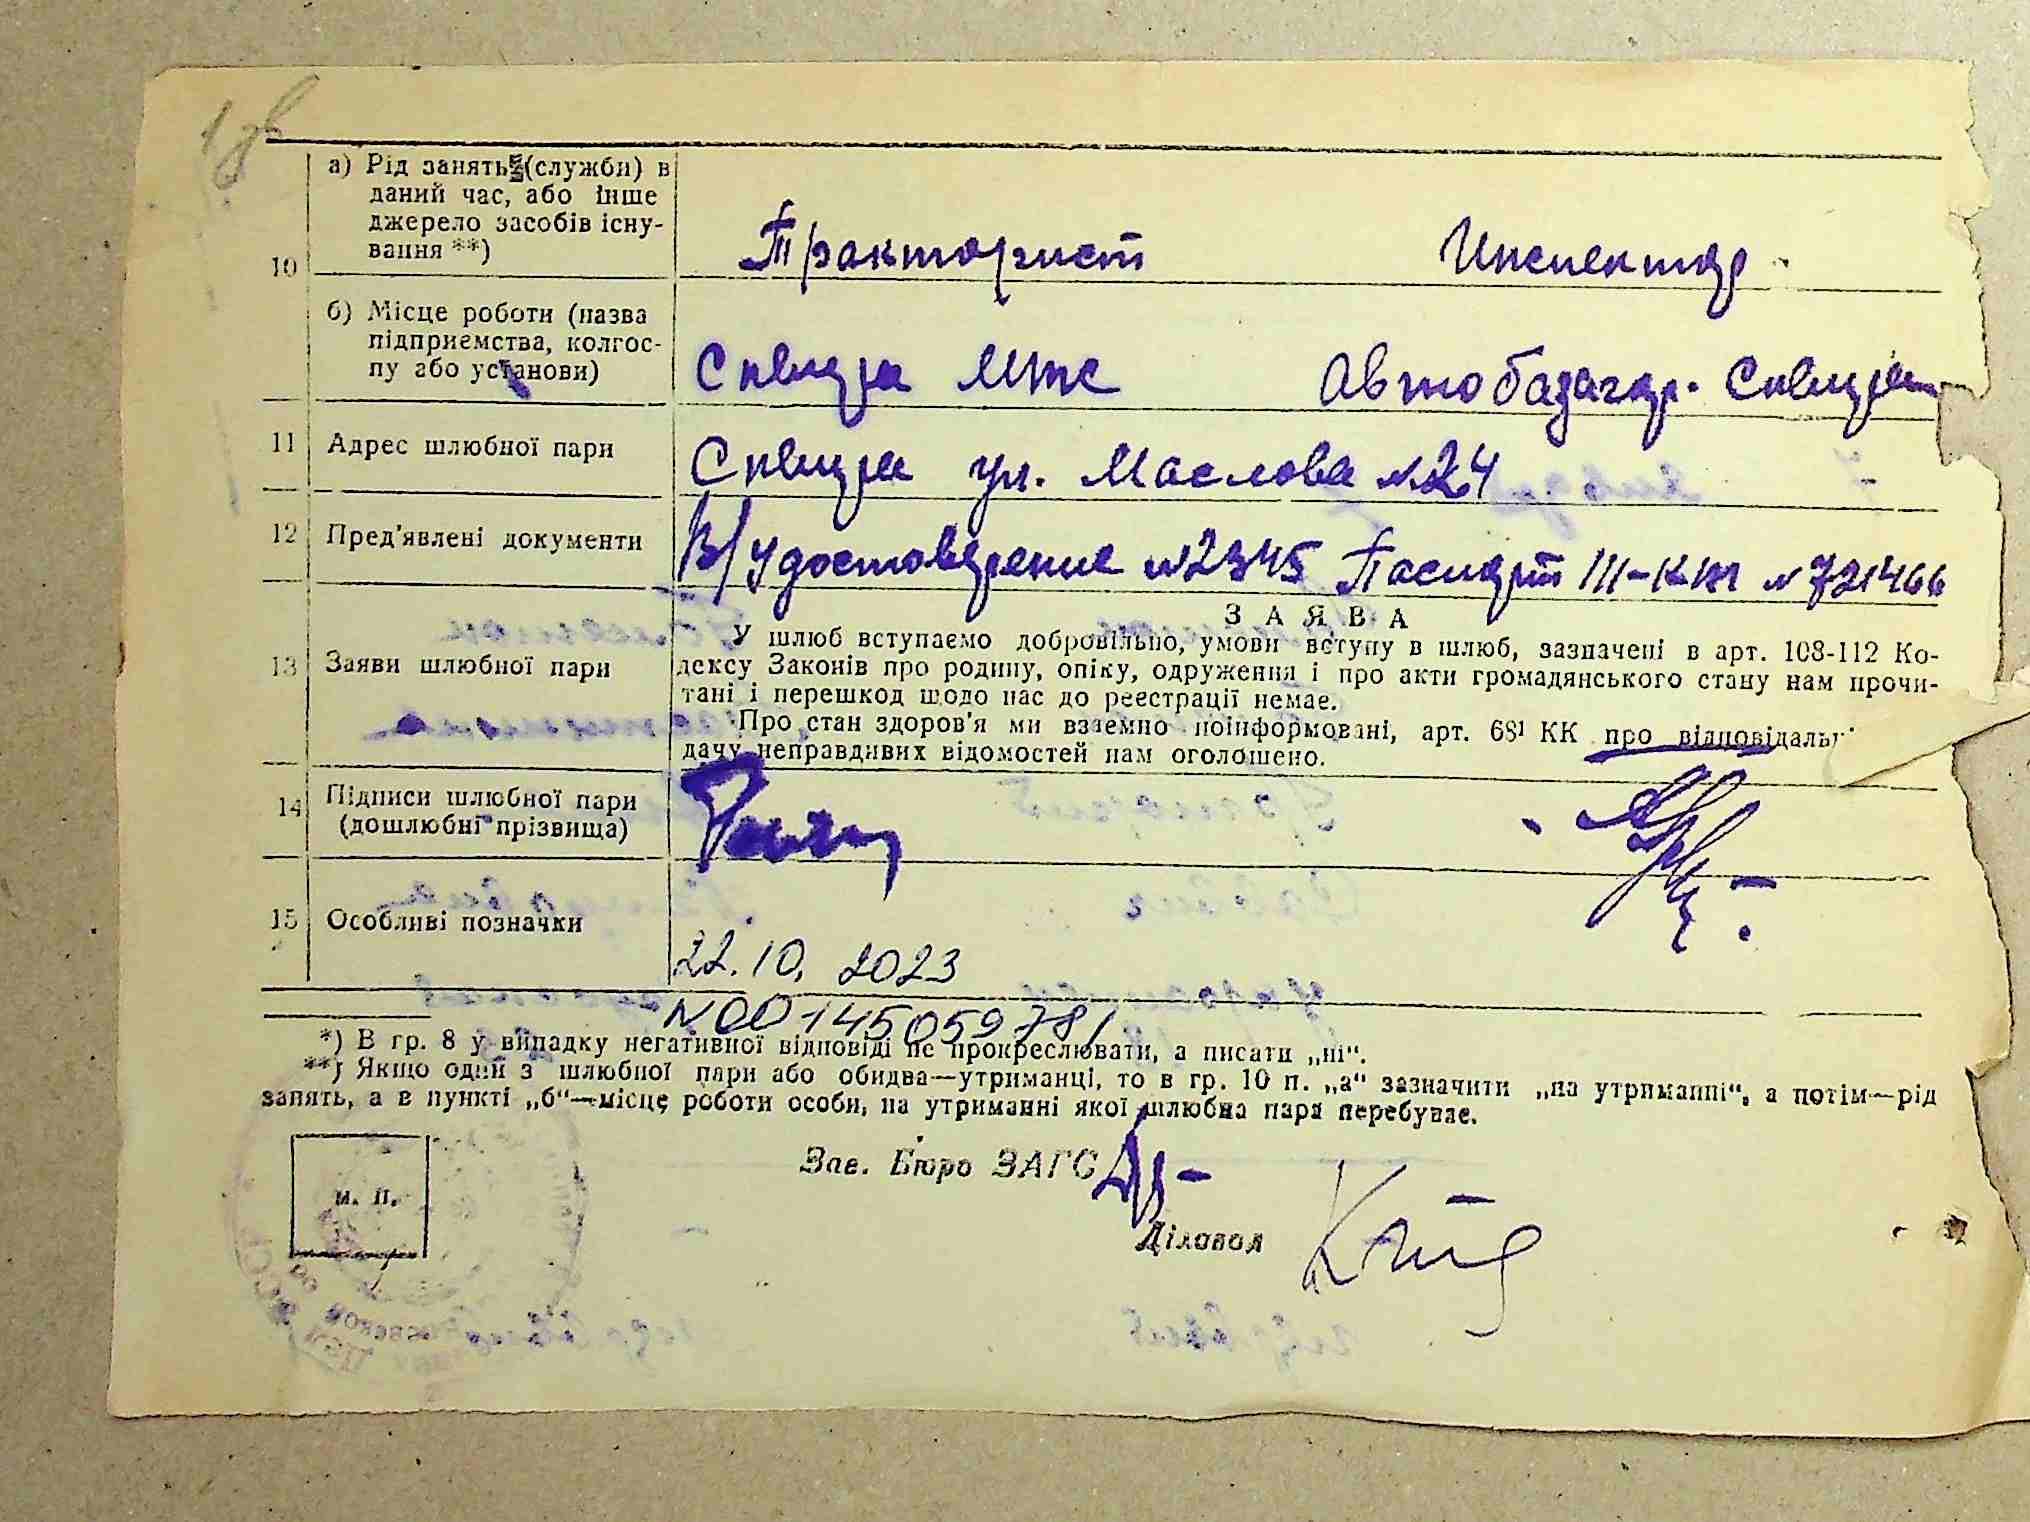 1зв
а) Рід занять (служби) в
даний час, або інше
джерело засобів існу-
вання **)
10
Тракторист Инспектор
б) Місце роботи (назва
підприємства, колгос-
пу або установи)
Сквира Мтс Автобазагор. Сквира
11 Адрес шлюбної пари Сквира ул. Маслова №24
12 Пред'явлені документи В/Удостоверение №2345 Паспорт III-КШ №721466
ЗАЯВА
У шлюб вступаємо добровільно, умови вступу в шлюб, зазначені в арт. 108-112 Ко-
13 Заяви шлюбної пари дексу Законів про родину, опіку, одруження і про акти громадянського стану нам прочи-
тані і перешкод щодо нас до реестрації немає.
Про стан здоров'я ми взаємно поінформовані, арт. 68¹ КК про відповідаль
дачу неправдивих відомостей нам оголошено.
14 Підписи шлюбної пари
(дошлюбні прізвища)
15 Особливі позначки
22.10. 2023
N00145059781
*) В гр. 8 у випадку негативної відповіді не прокреслювати, а писати „ні“.
**) Якщо один з шлюбної пари або обидва—утриманці, то в гр. 10 п. „а“ зазначити „на утриманні“, а потім—рід
занять, а в пункті „б“—місце роботи особи, на утриманні якої шлюбна пара перебуває.
м. п.
Зав. Бюро ЗАГС
Діловод